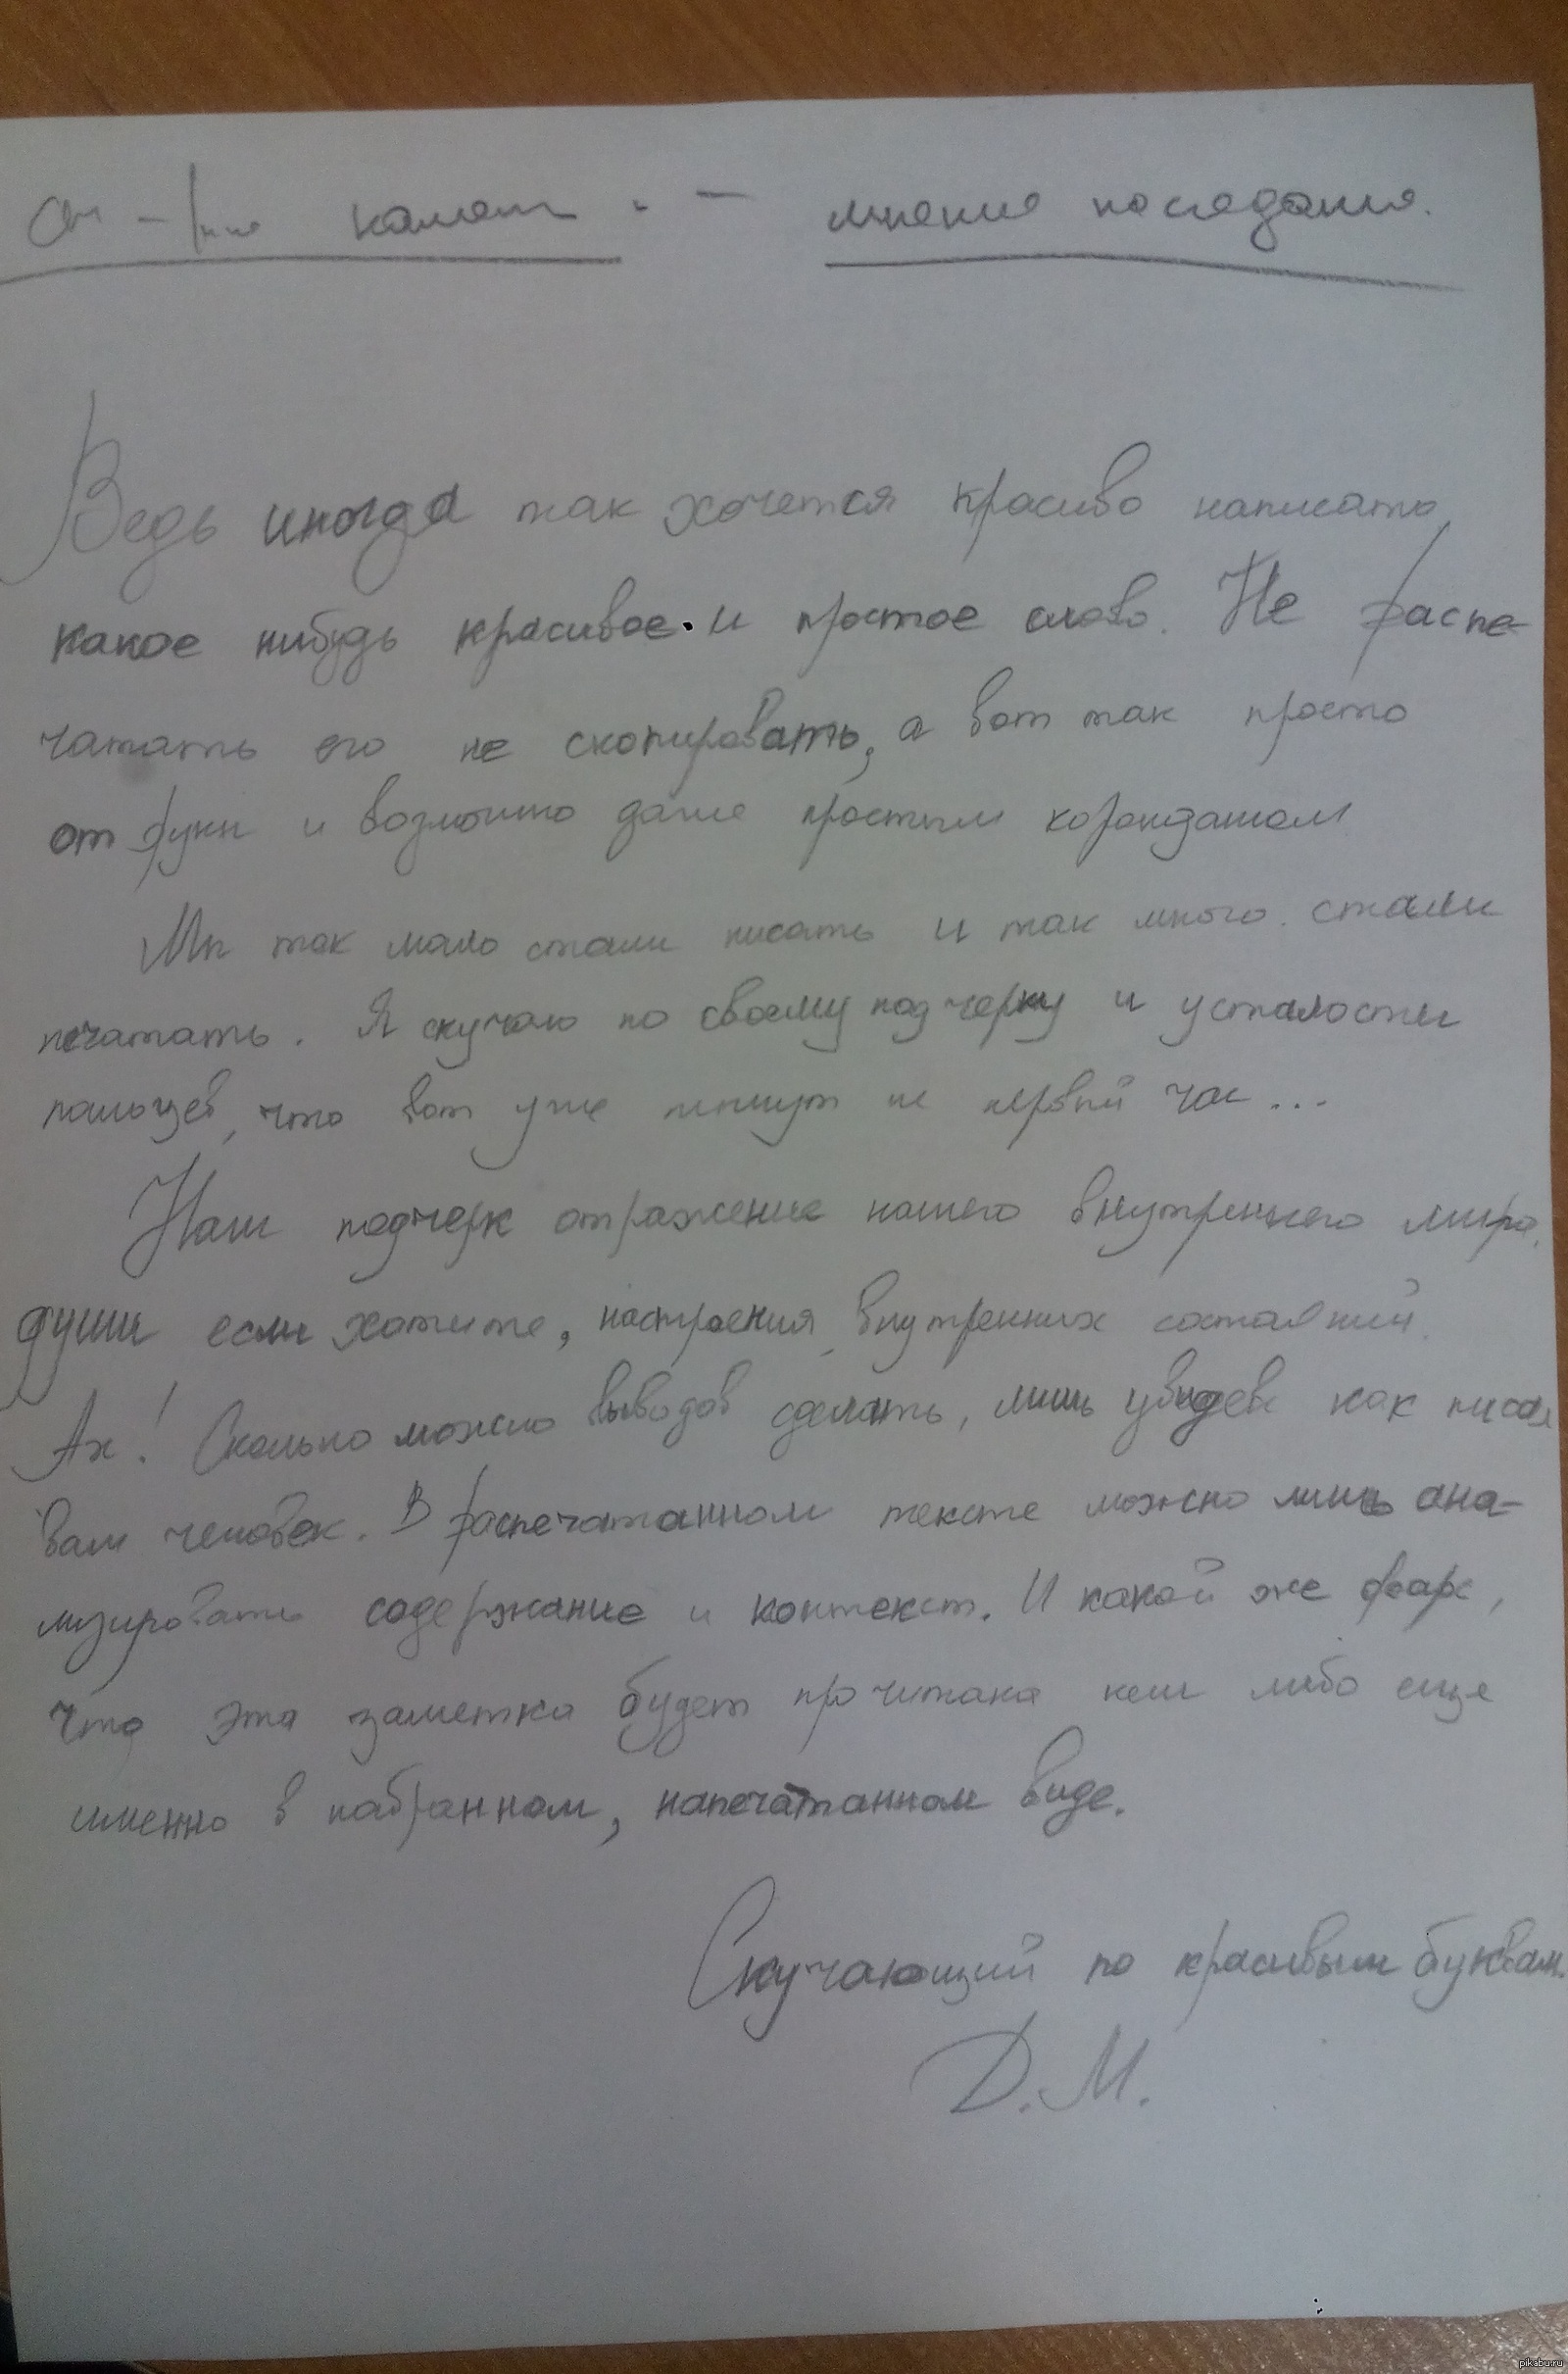 мнение
Ведь иногда так хочется красиво написать
какое нибудь красивое и простое слово. Не распе-
чатать его не скопировать, а вот так просто
от руки и возможно даже простым корандашом
Мы так мало стали писать и так много стали
печатать. Я скучаю по своему подчерку и усталости
пальцев, что вот уже пишут не первый час...
Наш подчерк отражение нашего внутреннего мира,
души если хотите, настроения, внутренних состояний.
Ах! Сколько можно выводов сделать, лишь увидев как писал
вам человек. В распечатанном тексте можно лишь ана-
лизировать содержание и контекст. И какой же фарс,
что эта заметка будет прочитана кем либо еще
именно в набранном, напечатанном виде.
Скучающий по красивым буквам.
Д.М.
pikabu.ru